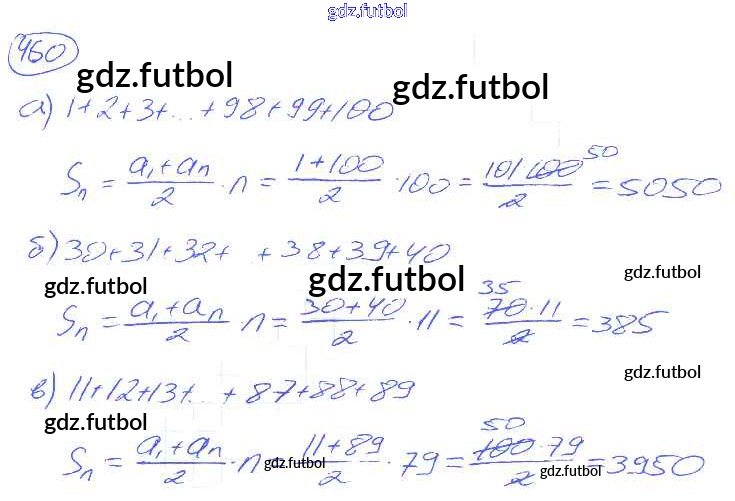 gdz.futbol
460
gdz.futbol gdz.futbol
а) 1+2+3+...+98+99+100
Sn = (a1+an)/2 · n = (1+100)/2 · 100 = (101·100)/2 50 = 5050
б) 30+31+32+ +38+39+40
gdz.futbol gdz.futbol gdz.futbol
Sn = (a1+an)/2 · n = (30+40)/2 · 11 = 35 (70·11)/2 = 385
в) 11+12+13+...+87+88+89
gdz.futbol
gdz.futbol
Sn = (a1+an)/2 · n = (11+89)/2 · 79 = 50 (100·79)/2 = 3950
gdz.futbol gdz.futbol